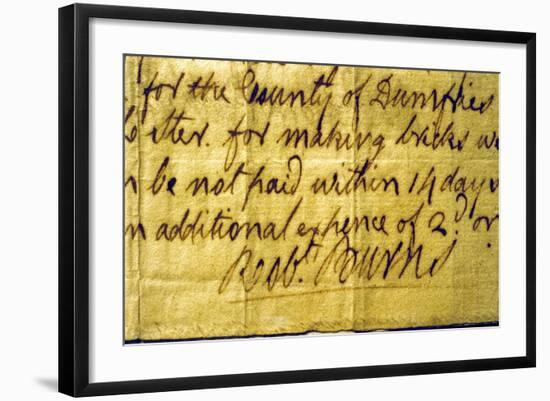 for the County of Dumfries
for making bricks
be not paid within 14 days
additional expence of 2d. or
Robt. Burns